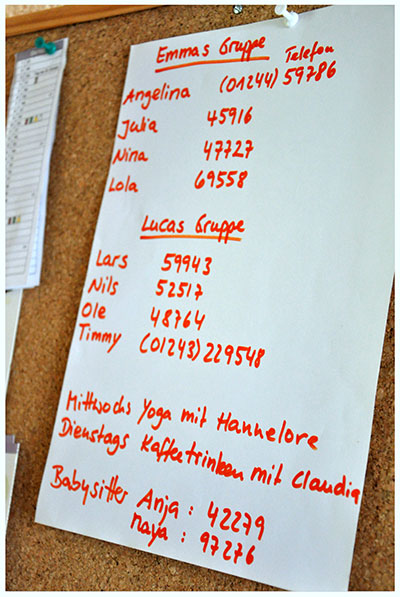 Emmas Gruppe Telefon
Angelina (01244) 59786
Julia 45916
Nina 47727
Lola 69558
Lucas Gruppe
Lars 59943
Nils 52517
Ole 48764
Timmy (01243) 229548
Mittwochs Yoga mit Hannelore
Dienstags Kaffeetrinken mit Claudia
Babysitter Anja : 42279
Maya : 97276